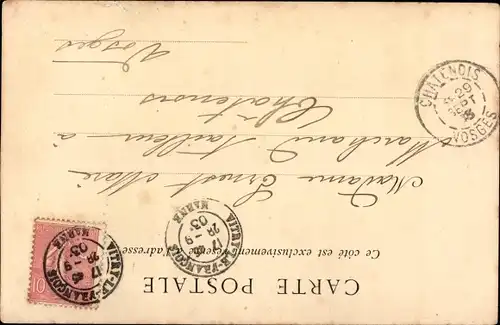 CARTE POSTALE
Ce côté est exclusivement réservé à l'adresse
Madame Ernest Marie
Marchand Tailleur à
Châtenois
Vosges
VITRY-LE-FRANÇOIS
17 45
28 - 9
03
MARNE
VITRY-LE-FRANÇOIS
17 45
28 - 9
03
MARNE
10
CHATENOIS
29
SEPT
03
VOSGES